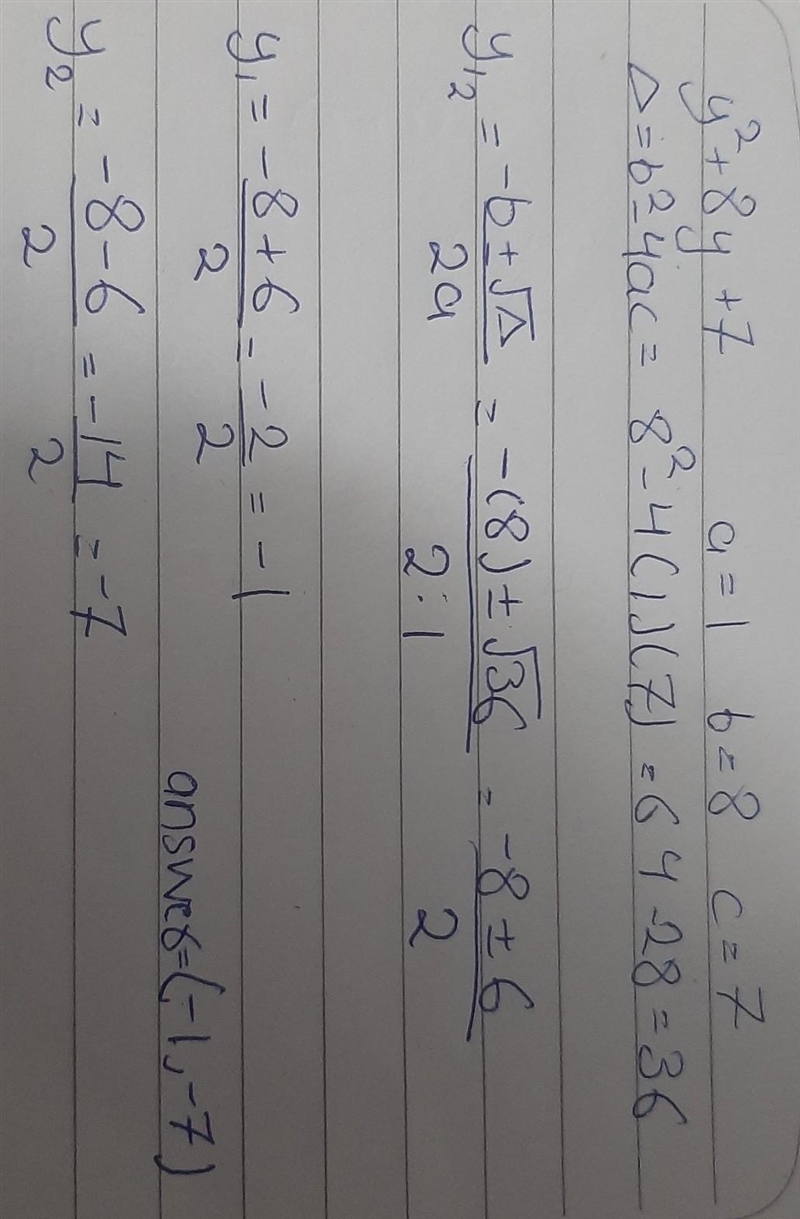 y² + 8y + 7 a = 1 b = 8 c = 7
Δ = b² - 4ac = 8² - 4(1)(7) = 64 - 28 = 36
y₁₂ = -b ± √Δ / 2a = -(8) ± √36 / 2·1 = -8 ± 6 / 2
y₁ = -8 + 6 / 2 = -2 / 2 = -1
y₂ = -8 - 6 / 2 = -14 / 2 = -7
answer = (-1, -7)